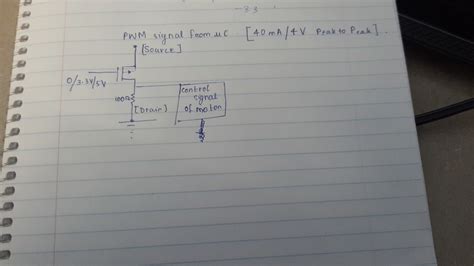 -33-
PWM signal from uC [40 mA/4V Peak to Peak].
[Source]
0/3.3V/5V
100Ω
[Drain]
control
signal
of motor